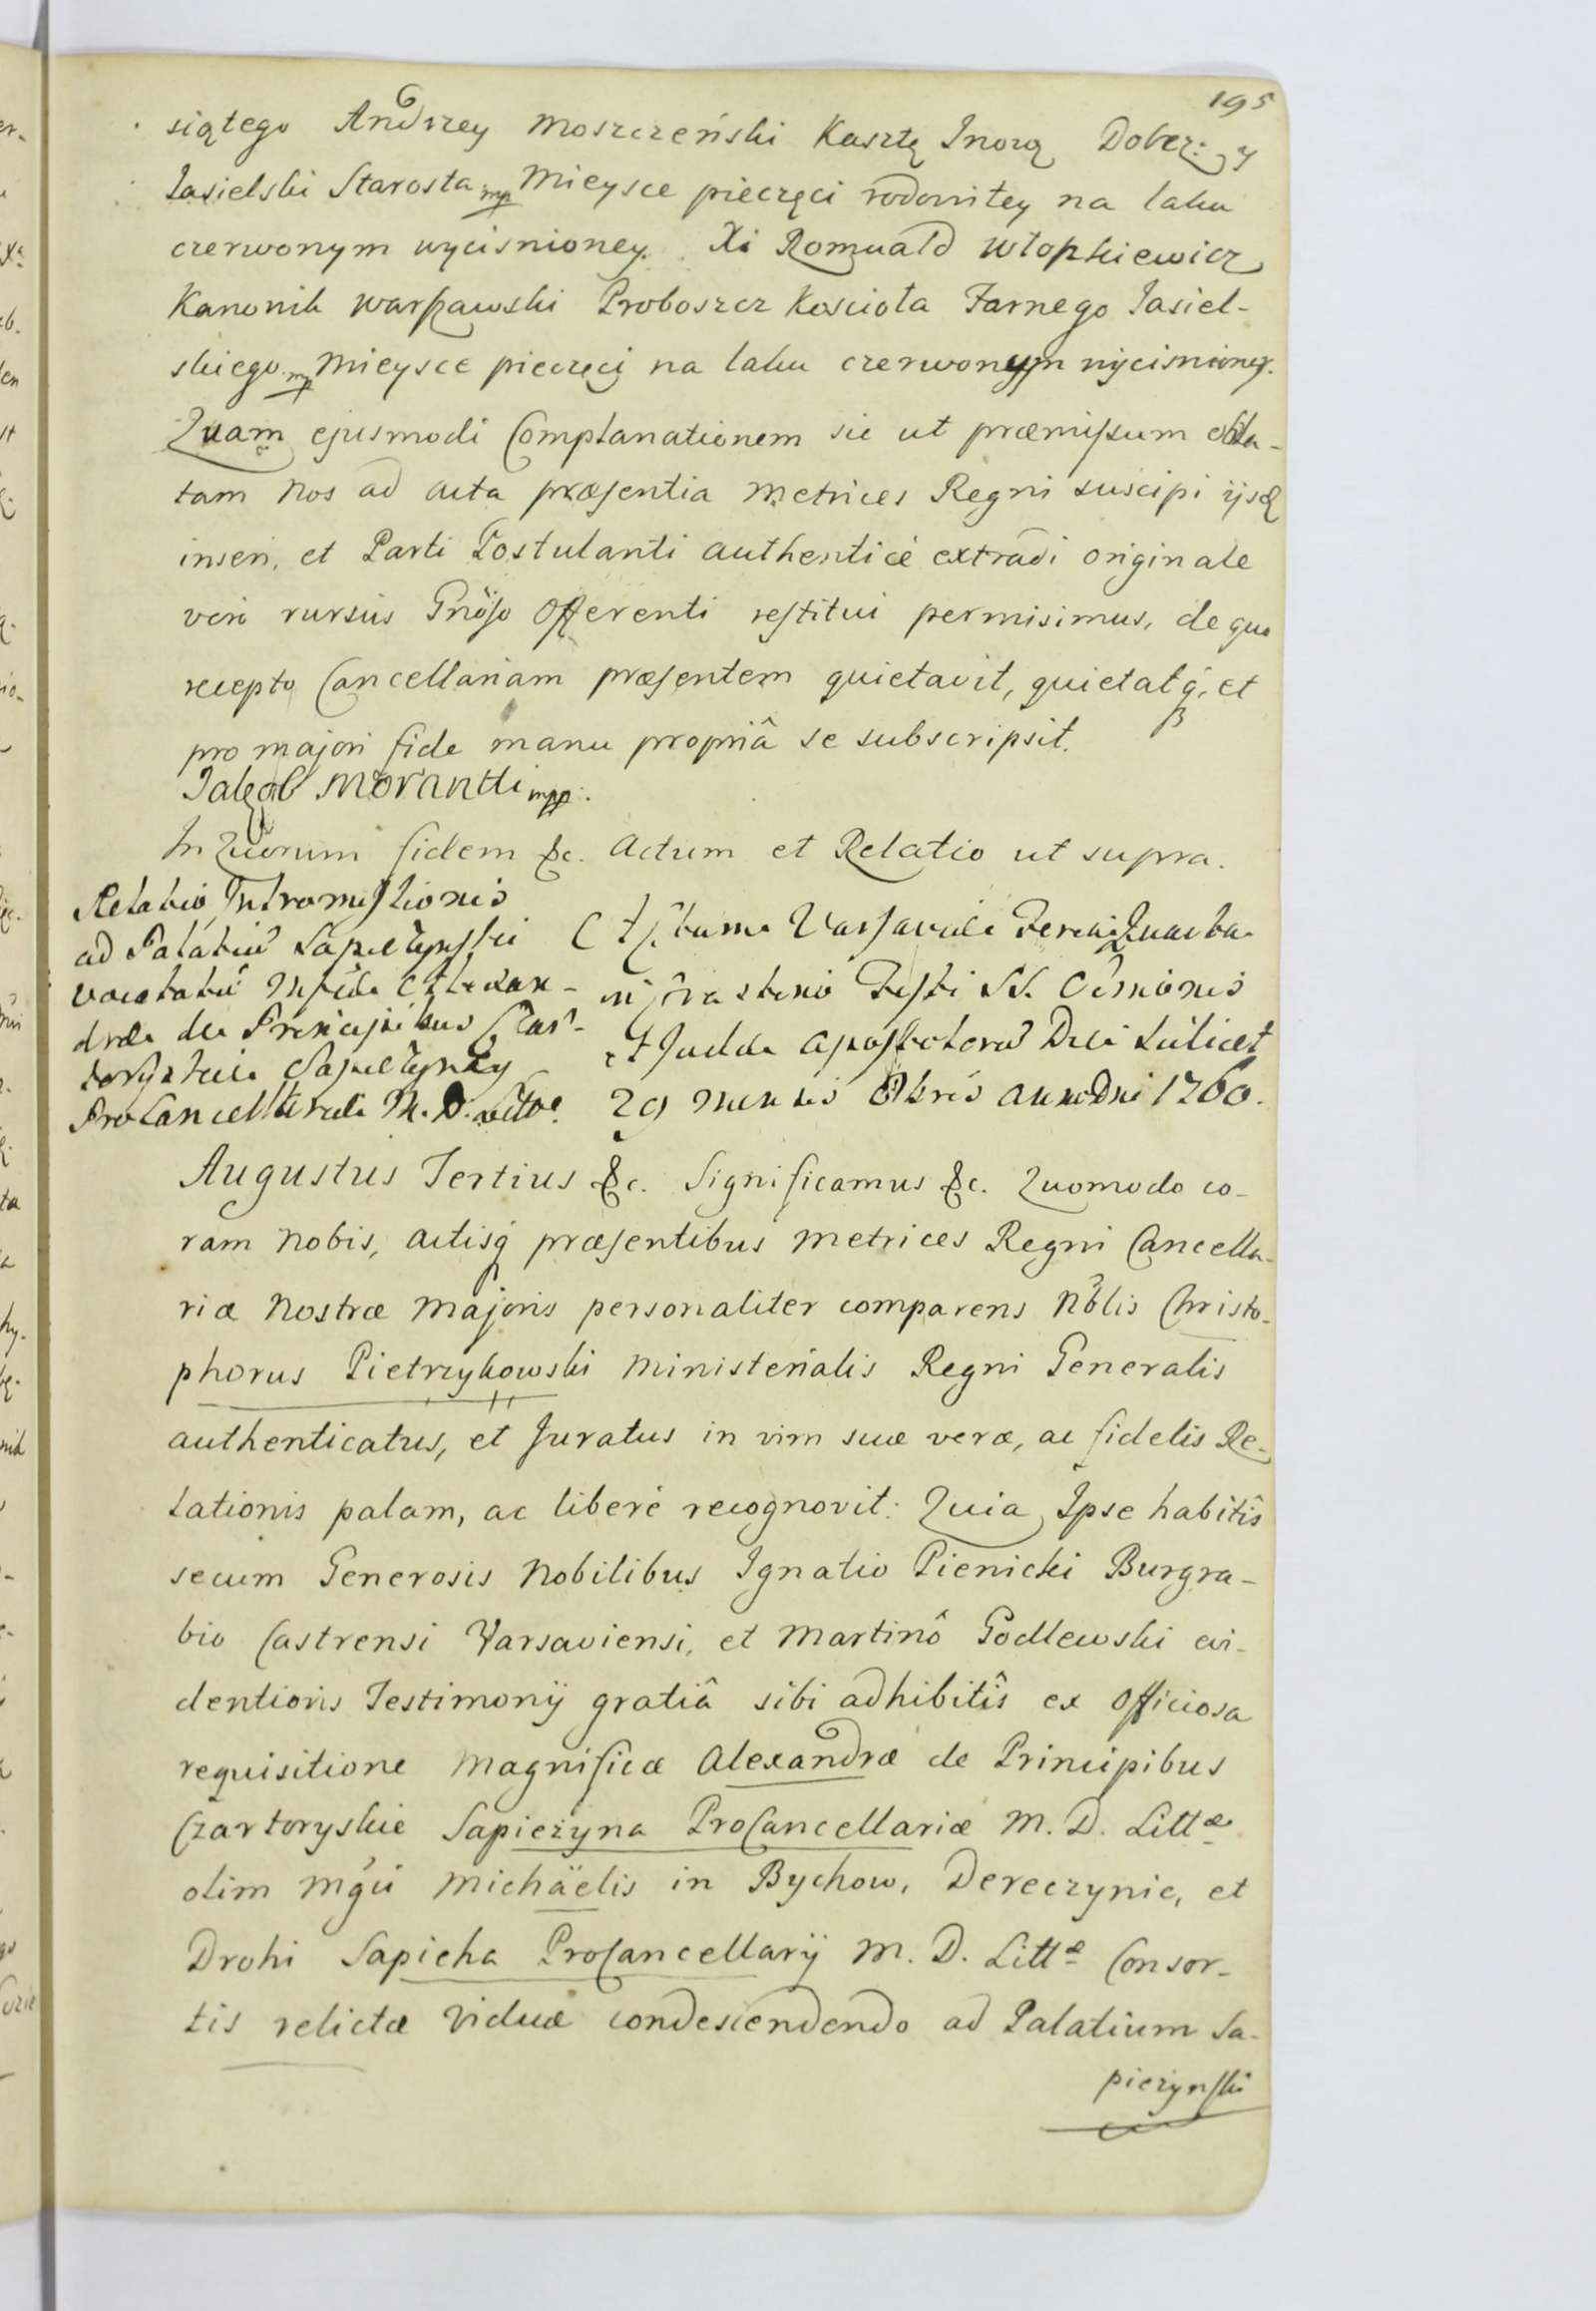 195
siątego Andrzey Moszczeński Kasztę Inorą Dobrz: y
Jasielski Starosta mp Mieysce pieczęci rodowitey na laku
czerwonym wyciśnioney. Xi Romuald Wlopkiewicz
Kanonik Warszawski Proboszcz Kościoła Farnego Jasiel-
skiego. mp Mieysce pieczęci na laku czerwonym wyciśnioney.
Quam ejusmodi Complanationem sic ut præmissum obla-
tam Nos ad acta præsentia Metrices Regni suscipi ijsq
inseri, et Parti Postulanti authenticè extradi originale
verò rursùs Gnöso Offerenti restitui permisimus, de quo
recepto Cancellariam præsentem quietavit, quietatq, et
pro majori fide manu propriâ se subscripsit.
Jakob Morantti mpp.
In Quorum fidem &c. Actum et Relatio ut supra.
Relatio Intromissionis
ad Palatiũ Sapieżynski
vocatatũ Mficæ Alexan-
dræ de Principibus Czar-
toryskie Sapieżyny
ProCancellariæ M. D. Littæ.
Actum Varsaviæ Feria Quarta
in Crastino Festi SS. Simonis
et Judæ Apostolorũ Die scilicet
29 Mensis 8bris Anno Dni 1760.
Augustus Tertius &c. Significamus &c. Quomodo co-
ram Nobis, actisq præsentibus Metrices Regni Cancella-
riæ Nostræ Majoris personaliter comparens Nblis Christo-
phorus Pietrzykowski Ministerialis Regni Generalis
authenticatus, et Juratus in vim suæ veræ, ac fidelis Re-
lationis palam, ac liberè recognovit: Quia Ipse habitîs
secum Generosis Nobilibus Ignatio Pienicki Burgra-
bio Castrensi Varsaviensi, et Martinô Godlewski evi-
dentioris Testimonij gratiâ sibi adhibitîs ex Officiosa
requisitione Magnificæ Alexandræ de Principibus
Czartoryskie Sapieżyna ProCancellariæ M. D. Littæ
olim Mgũ Michäelis in Bychow, Dereczynie, et
Drohi Sapieha ProCancellarij M. D. Littæ Consor-
tis relictæ Viduæ condescendendo ad Palatium Sa-
pieżynski